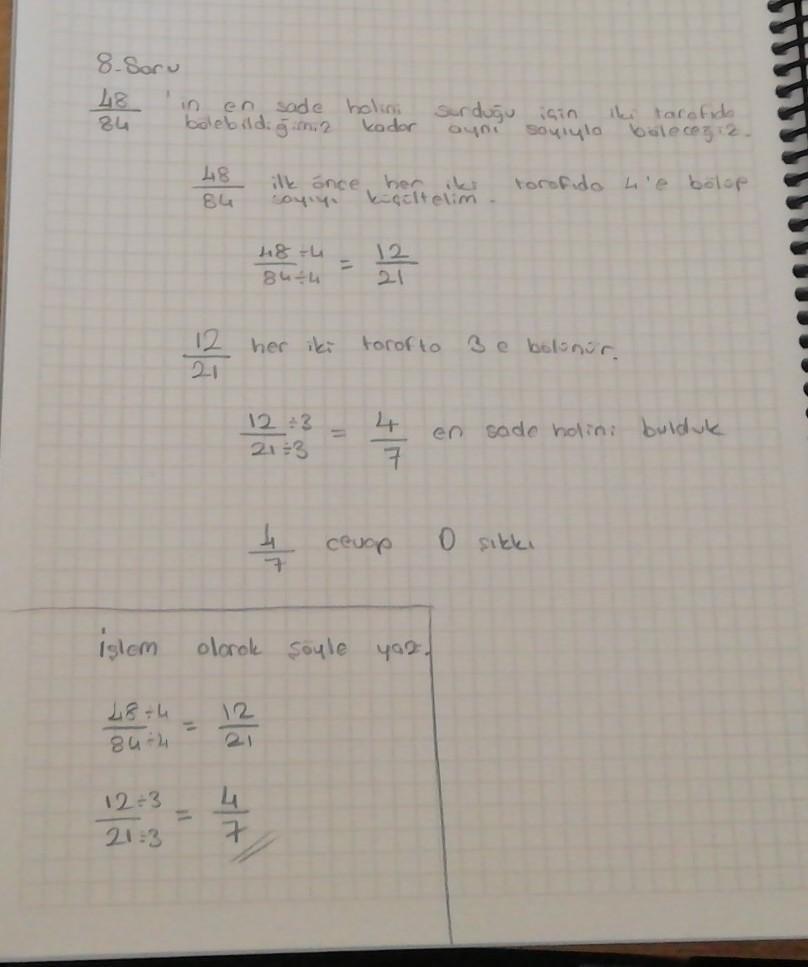 8-Soru
48/84 'in en sade halini surduğu için iki tarafıda
bölebildiğimiz kadar aynı sayıyla böleceğiz.
48/84 ilk önce her iki tarafıda 4'e bölüp
sayıyı küçültelim.
48÷4/84÷4 = 12/21
12/21 her iki tarafta 3 e bölünür.
12÷3/21÷3 = 4/7 en sade halini bulduk
4/7 cevap D şıkkı
İşlem olarak şöyle yaz.
48÷4/84÷4 = 12/21
12÷3/21÷3 = 4/7